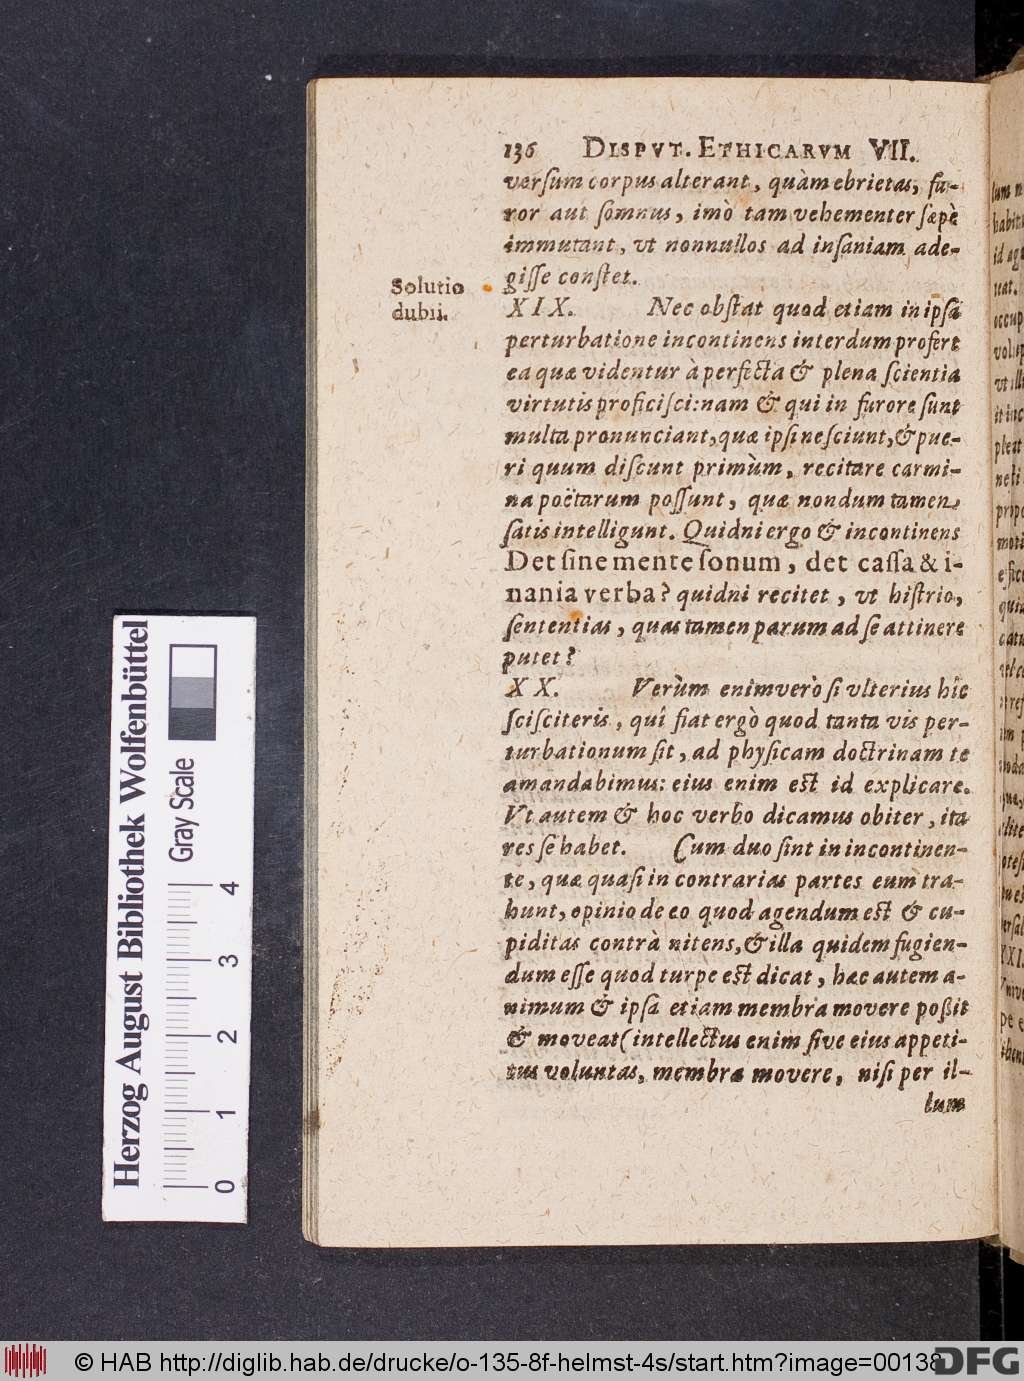 136 DISPVT. ETHICARVM VII.
versum corpus alterant, quàm ebrietas, fu-
ror aut somnus, imò tam vehementer sæpè
immutant, vt nonnullos ad insaniam ade-
gisse constet.
Solutio
dubii.
XIX. Nec obstat quod etiam in ipsâ
perturbatione incontinens interdum profert
ea quæ videntur à perfecta & plena scientia
virtutis proficisci: nam & qui in furore sunt
multa pronunciant, quæ ipsi nesciunt, & pue-
ri quum discunt primùm, recitare carmi-
na poëtarum possunt, quæ nondum tamen
satis intelligunt. Quidni ergo & incontinens
Det sine mente sonum, det cassa & i-
nania verba? quidni recitet, vt histrio,
sententias, quas tamen parum ad se attinere
putet?
XX. Verùm enimverò si vlterius hîc
scisciteris, quî fiat ergò quod tanta vis per-
turbationum sit, ad physicam doctrinam te
amandabimus: eius enim est id explicare.
Vt autem & hoc verbo dicamus obiter, ita
res se habet. Cum duo sint in incontinen-
te, quæ quasi in contrarias partes eum tra-
hunt, opinio de eo quod agendum est & cu-
piditas contrà nitens, & illa quidem fugien-
dum esse quod turpe est dicat, hæc autem a-
nimum & ipsa etiam membra movere poßit
& moveat (intellectus enim sive eius appeti-
tus voluntas, membra movere, nisi per il-
lum
Herzog August Bibliothek Wolfenbüttel
Gray Scale
0 1 2 3 4
© HAB http://diglib.hab.de/drucke/o-135-8f-helmst-4s/start.htm?image=00138
DFG